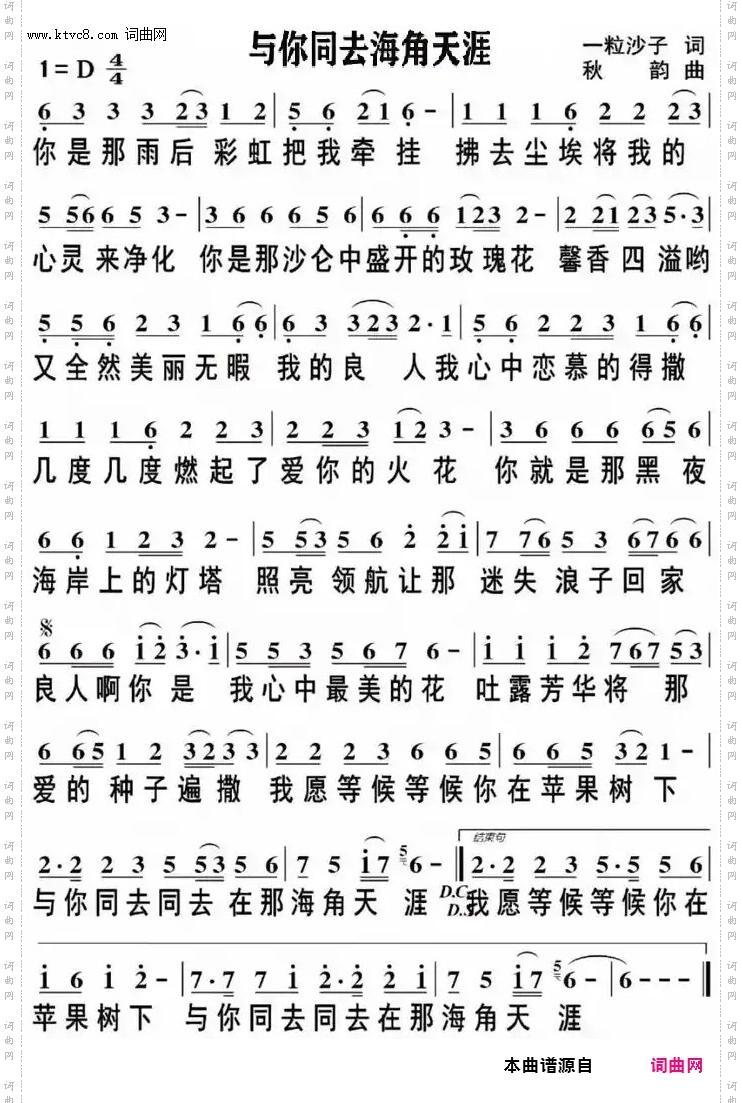 www.ktvc8.com 词曲网
与你同去海角天涯
一粒沙子 词
1=D 4/4
秋 韵 曲
6 3 3 3 23 1 2 | 5 6 21 6 - | 1 1 1 6 2 2 23 |
你是那雨后 彩虹把我牵挂 拂去尘埃将我的
5 56 6 5 3 - | 3 6 6 6 5 6 | 6 6 6 123 2 - | 2 21 23 5·3 |
心灵来净化 你是那沙仑中盛开的玫瑰花 馨香四溢哟
5 5 6 2 3 1 6 6 | 6 3 323 2·1 | 5 6 2 2 3 1 6 6 |
又全然美丽无暇 我的良 人我心中恋慕的得撒
1 1 1 6 2 2 3 | 2 2 3 12 3 - | 3 6 6 6 65 6 |
几度几度燃起了爱你的火花 你就是那黑夜
6 6 1 2 3 2 - | 5 53 5 6 2 21 | 7 76 5 3 67 65 |
海岸上的灯塔 照亮 领航让那 迷失 浪子回家
6 6 6 12 3·1 | 5 5 3 5 6 7 6 - | 1 1 1 2 767 53 |
良人啊你 是 我心中最美的花 吐露芳华将 那
6 65 1 2 3 23 3 | 2 2 2 3 5 6 5 3 | 6 6 5 32 1 - |
爱的 种子遍撒 我愿等候等候你在苹果树下
结束句
2·2 2 3 5 53 5 6 | 7 5 17 5 6 - 2·2 2 3 5·5 5 6 |
与你同去同去 在那海角天 涯 D.C. D.S 我愿等候等候你在
1 6 1 2 - | 7·7 7 1 2·2 2 1 | 7 5 17 5 6 - | 6 - - - ||
苹果树下 与你同去同去在那海角天 涯
本曲谱源自 词曲网